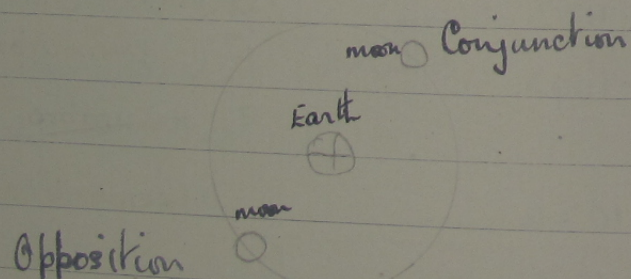 moon Conjunction
Earth
moon
Opposition